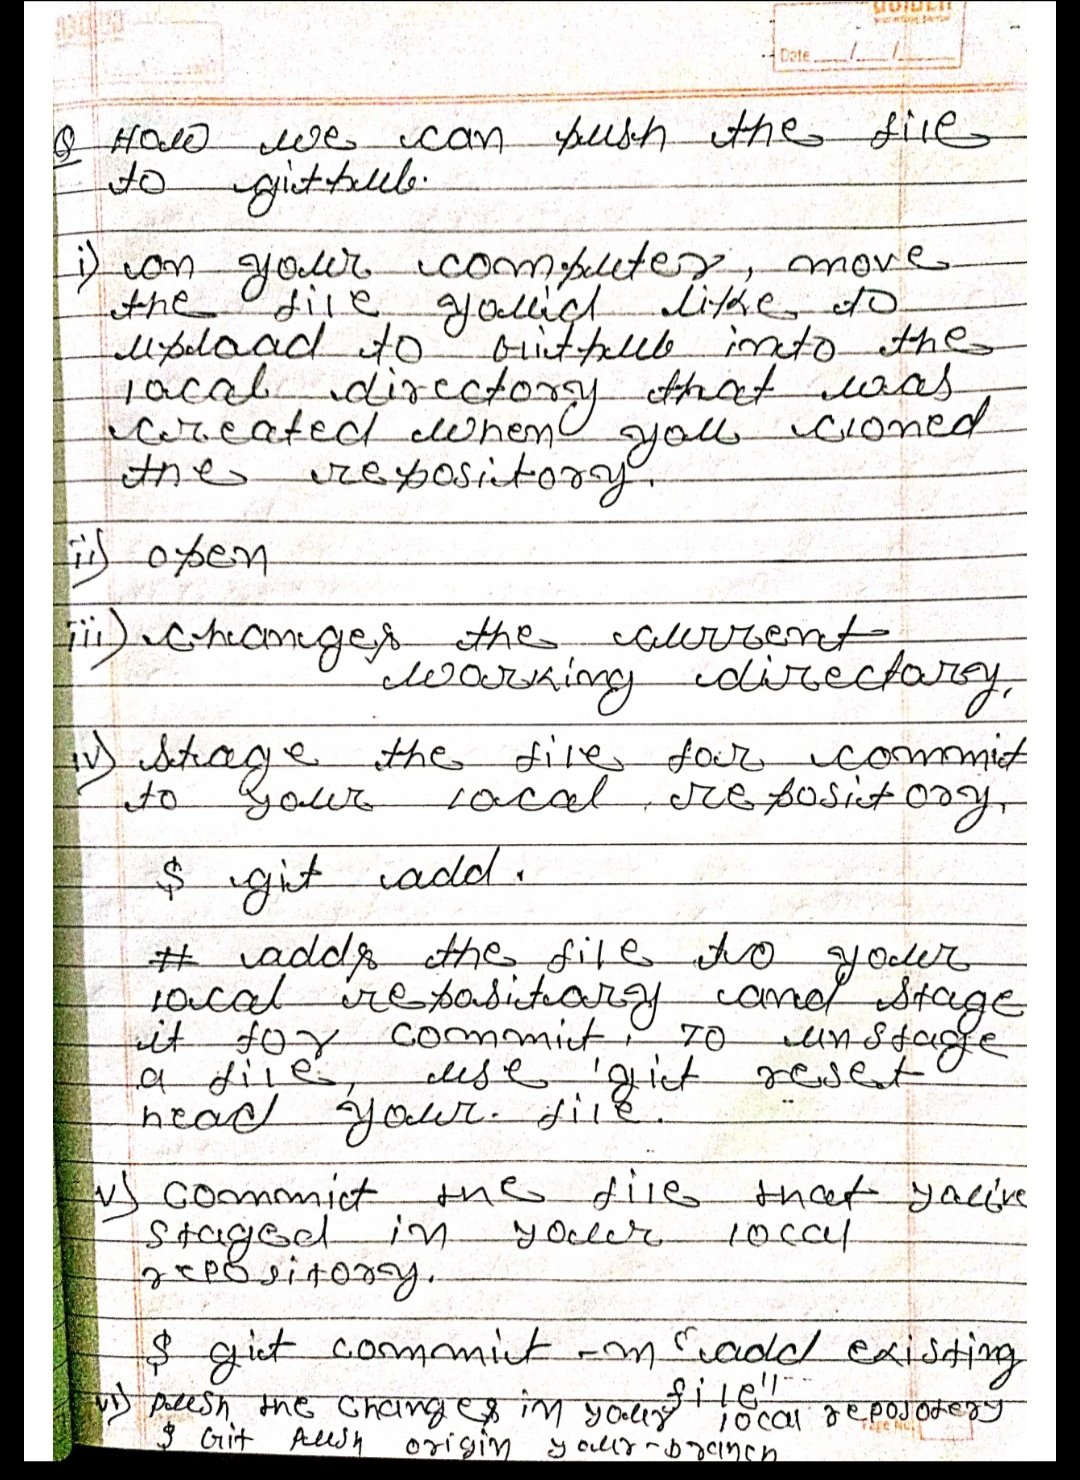 GOLDEN
Date / /
Q How we can push the file
to github.
i) on your computer, move
the file you'd like to
upload to Github into the
local directory that was
created when you cloned
the repository.
ii) open
iii) changes the current
working directory.
iv) stage the file for commit
to your local repository,
$ git add .
# adds the file to your
local repository and stage
it for commit. To unstage
a file, use 'git reset
head your file.
v) Commit the file that you've
staged in your local
repository.
$ git commit -m "add existing
file"
vi) push the changes in your local reposotery
$ Git push origin your-branch